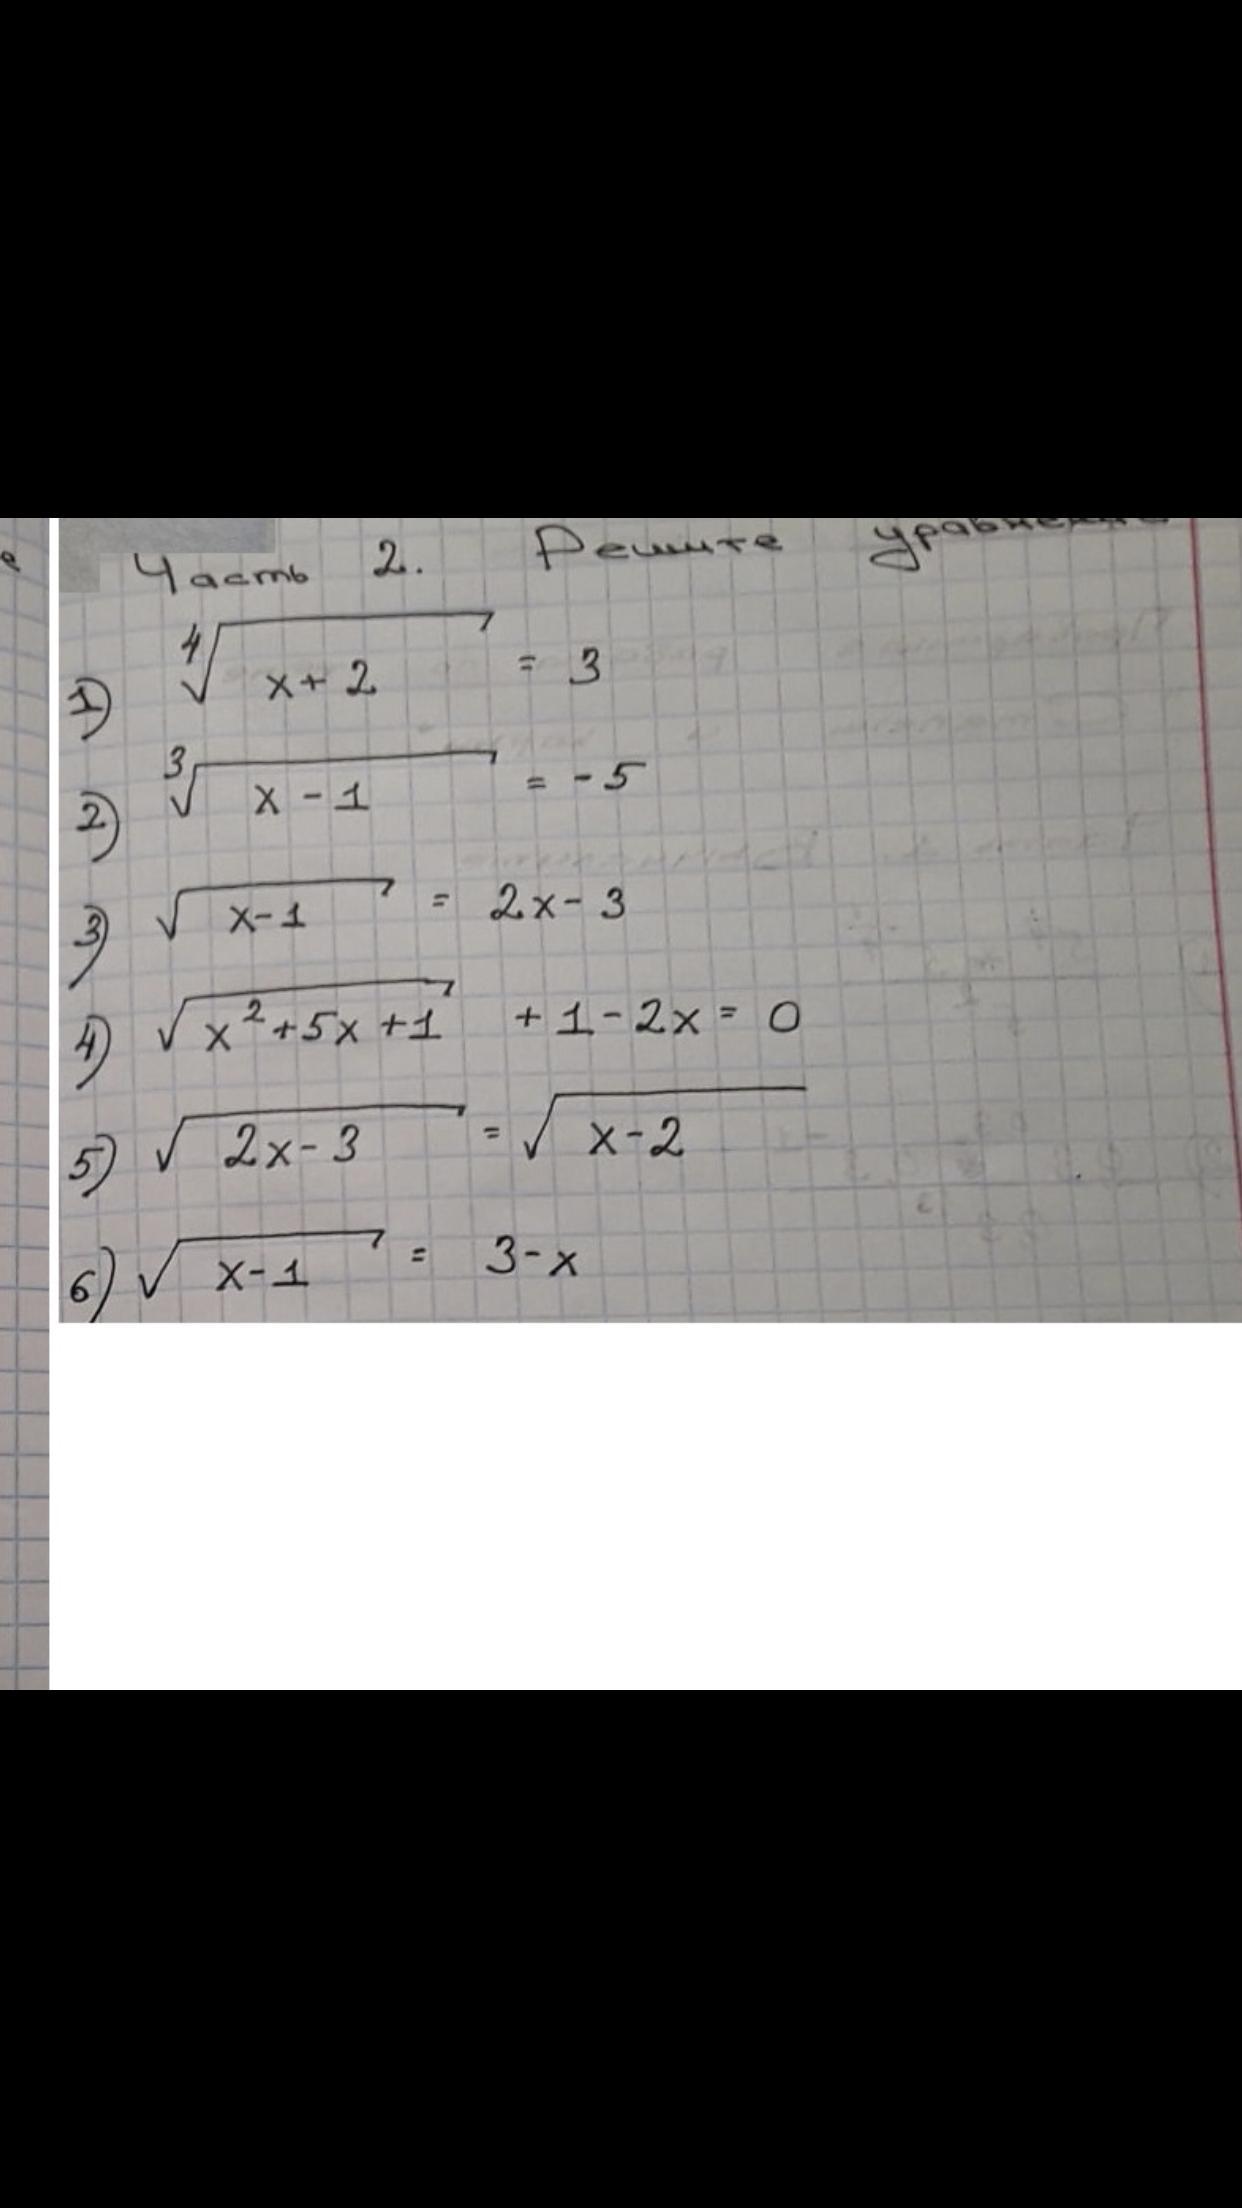 Часть 2. Решите уравнение
1) ⁴√(x+2) = 3
2) ³√(x-1) = -5
3) √(x-1) = 2x-3
4) √(x²+5x+1) +1-2x=0
5) √(2x-3) = √(x-2)
6) √(x-1) = 3-x